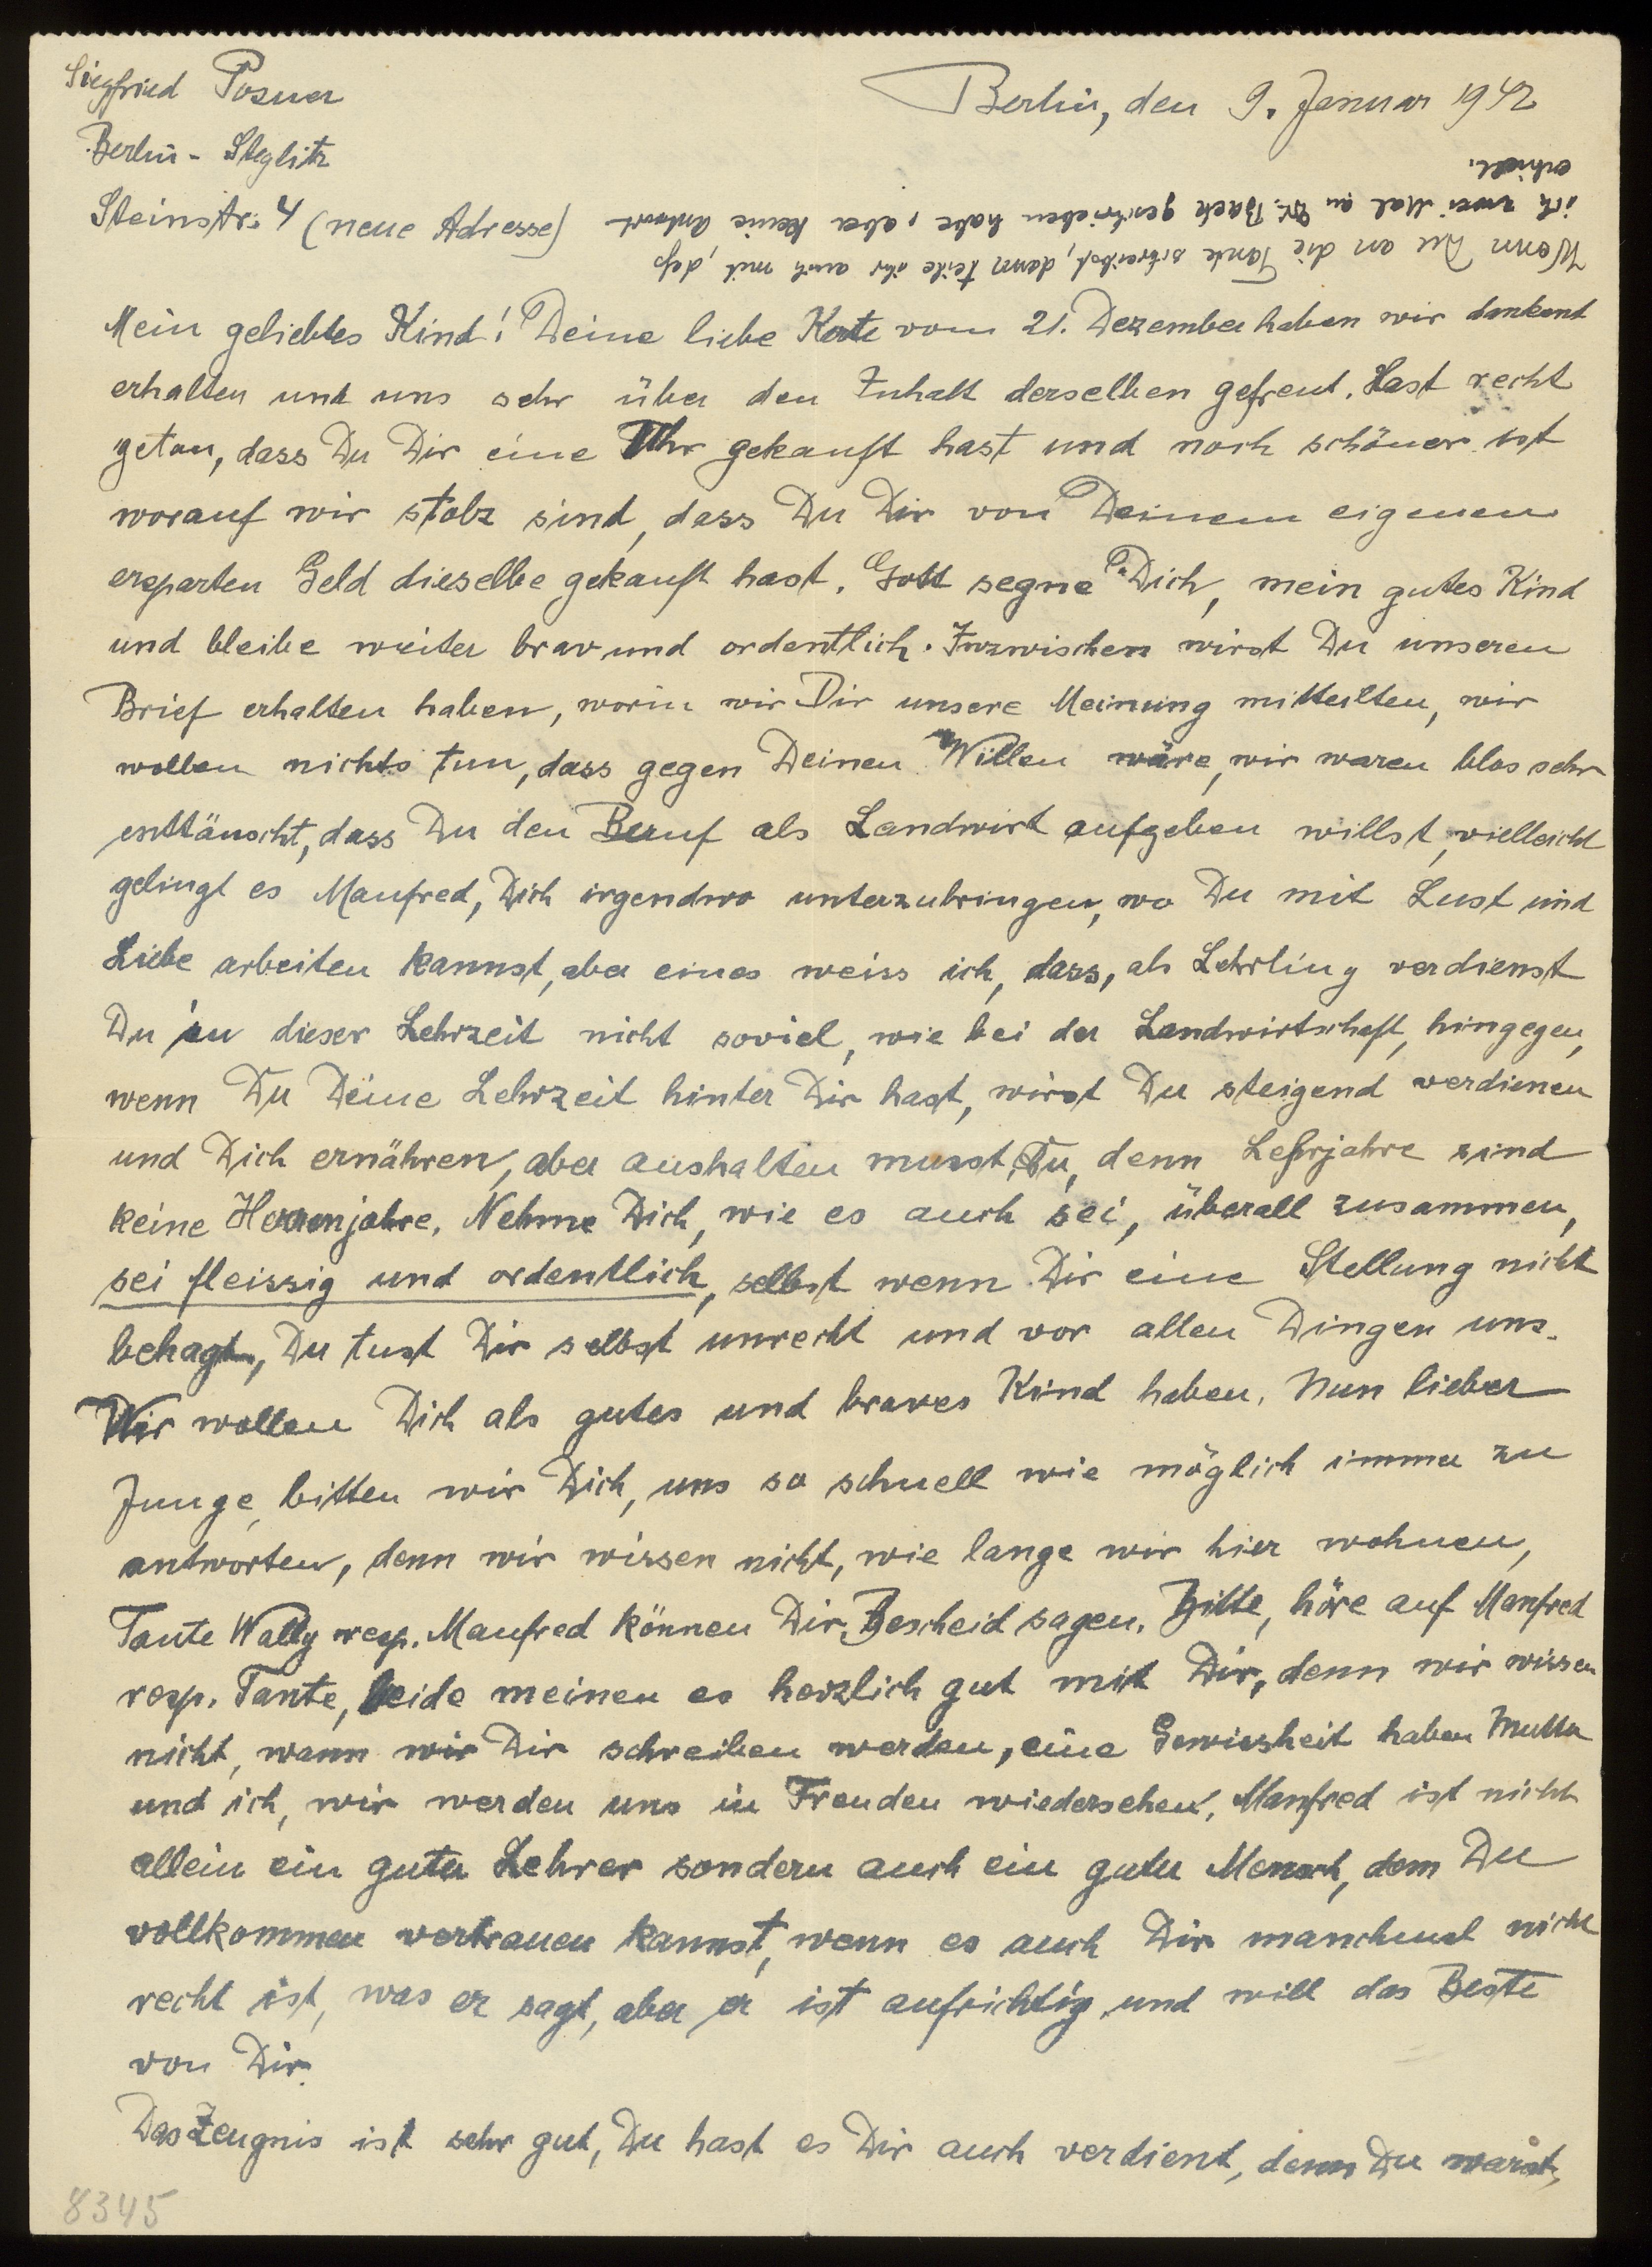 Siegfried Posner
Berlin, den 9. Januar 1942
Berlin - Steglitz
Steinstr. 4 (neue Adresse)
Wenn Du an die Tante schreibst, dann teile ihr auch mit, daß
ich zwei Mal an Dr. Bach geschrieben habe, aber keine Antwort
erhielt.
Mein geliebtes Kind! Deine liebe Karte vom 21. Dezember haben wir dankend
erhalten und uns sehr über den Inhalt derselben gefreut. Hast recht
getan, dass Du Dir eine Uhr gekauft hast und noch schöner ist
worauf wir stolz sind, dass Du Dir von Deinem eigenen
ersparten Geld dieselbe gekauft hast. Gott segne Dich, mein gutes Kind
und bleibe weiter brav und ordentlich. Inzwischen wirst Du unseren
Brief erhalten haben, worin wir Dir unsere Meinung mitteilten, wir
wollen nichts tun, dass gegen Deinen Willen wäre, wir waren blos sehr
enttäuscht, dass Du den Beruf als Landwirt aufgeben willst, vielleicht
gelingt es Manfred, Dich irgendwo unterzubringen, wo Du mit Lust und
Liebe arbeiten kannst, aber eines weiss ich, dass, als Lehrling verdienst
Du in dieser Lehrzeit nicht soviel, wie bei der Landwirtschaft, hingegen,
wenn Du Deine Lehrzeit hinter Dir hast, wirst Du steigend verdienen
und Dich ernähren, aber aushalten musst Du, denn Lehrjahre sind
keine Herrenjahre. Nehme Dich, wie es auch sei, überall zusammen,
sei fleissig und ordentlich, selbst wenn Dir eine Stellung nicht
behagt, Du tust Dir selbst unrecht und vor allen Dingen uns.
Wir wollen Dich als gutes und braves Kind haben. Nun lieber
Junge, bitten wir Dich, uns so schnell wie möglich immer zu
antworten, denn wir wissen nicht, wie lange wir hier wohnen,
Tante Wally resp. Manfred können Dir Bescheid sagen. Bitte, höre auf Manfred
resp. Tante, beide meinen es herzlich gut mit Dir, denn wir wissen
nicht, wann wir Dir schreiben werden, eine Gewissheit haben Mutter
und ich, wir werden uns in Freuden wiedersehen. Manfred ist nicht
allein ein guter Lehrer sondern auch ein guter Mensch, dem Du
vollkommen vertrauen kannst, wenn es auch Dir manchmal nicht
recht ist, was er sagt, aber er ist aufrichtig und will das Beste
von Dir.
Das Zeugnis ist sehr gut, Du hast es Dir auch verdient, denn Du warst,
8345